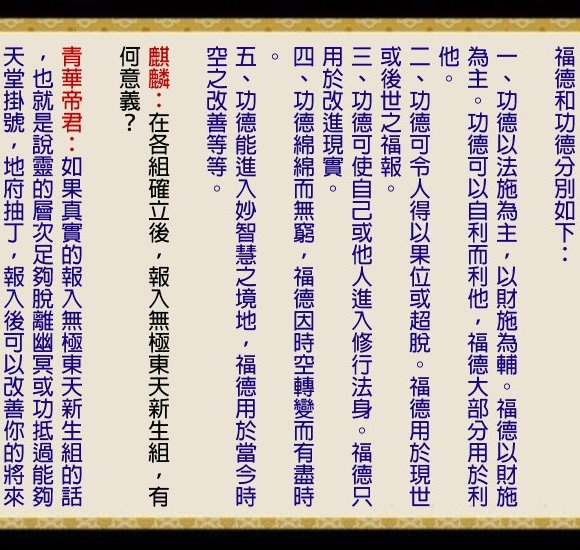 福德和功德分別如下：
一、功德以法施為主，以財施為輔。福德以財施
為主。功德可以自利而利他，福德大部分用於利
他。
二、功德可令人得以果位或超脫。福德用於現世
或後世之福報。
三、功德可使自己或他人進入修行法身。福德只
用於改進現實。
四、功德綿綿而無窮，福德因時空轉變而有盡時
。
五、功德能進入妙智慧之境地，福德用於當今時
空之改善等等。
麒麟：在各組確立後，報入無極東天新生組，有
何意義？
青華帝君：如果真實的報入無極東天新生組的話
，也就是說靈的層次足夠脫離幽冥或功抵過能夠
天堂掛號，地府抽丁，報入後可以改善你的將來